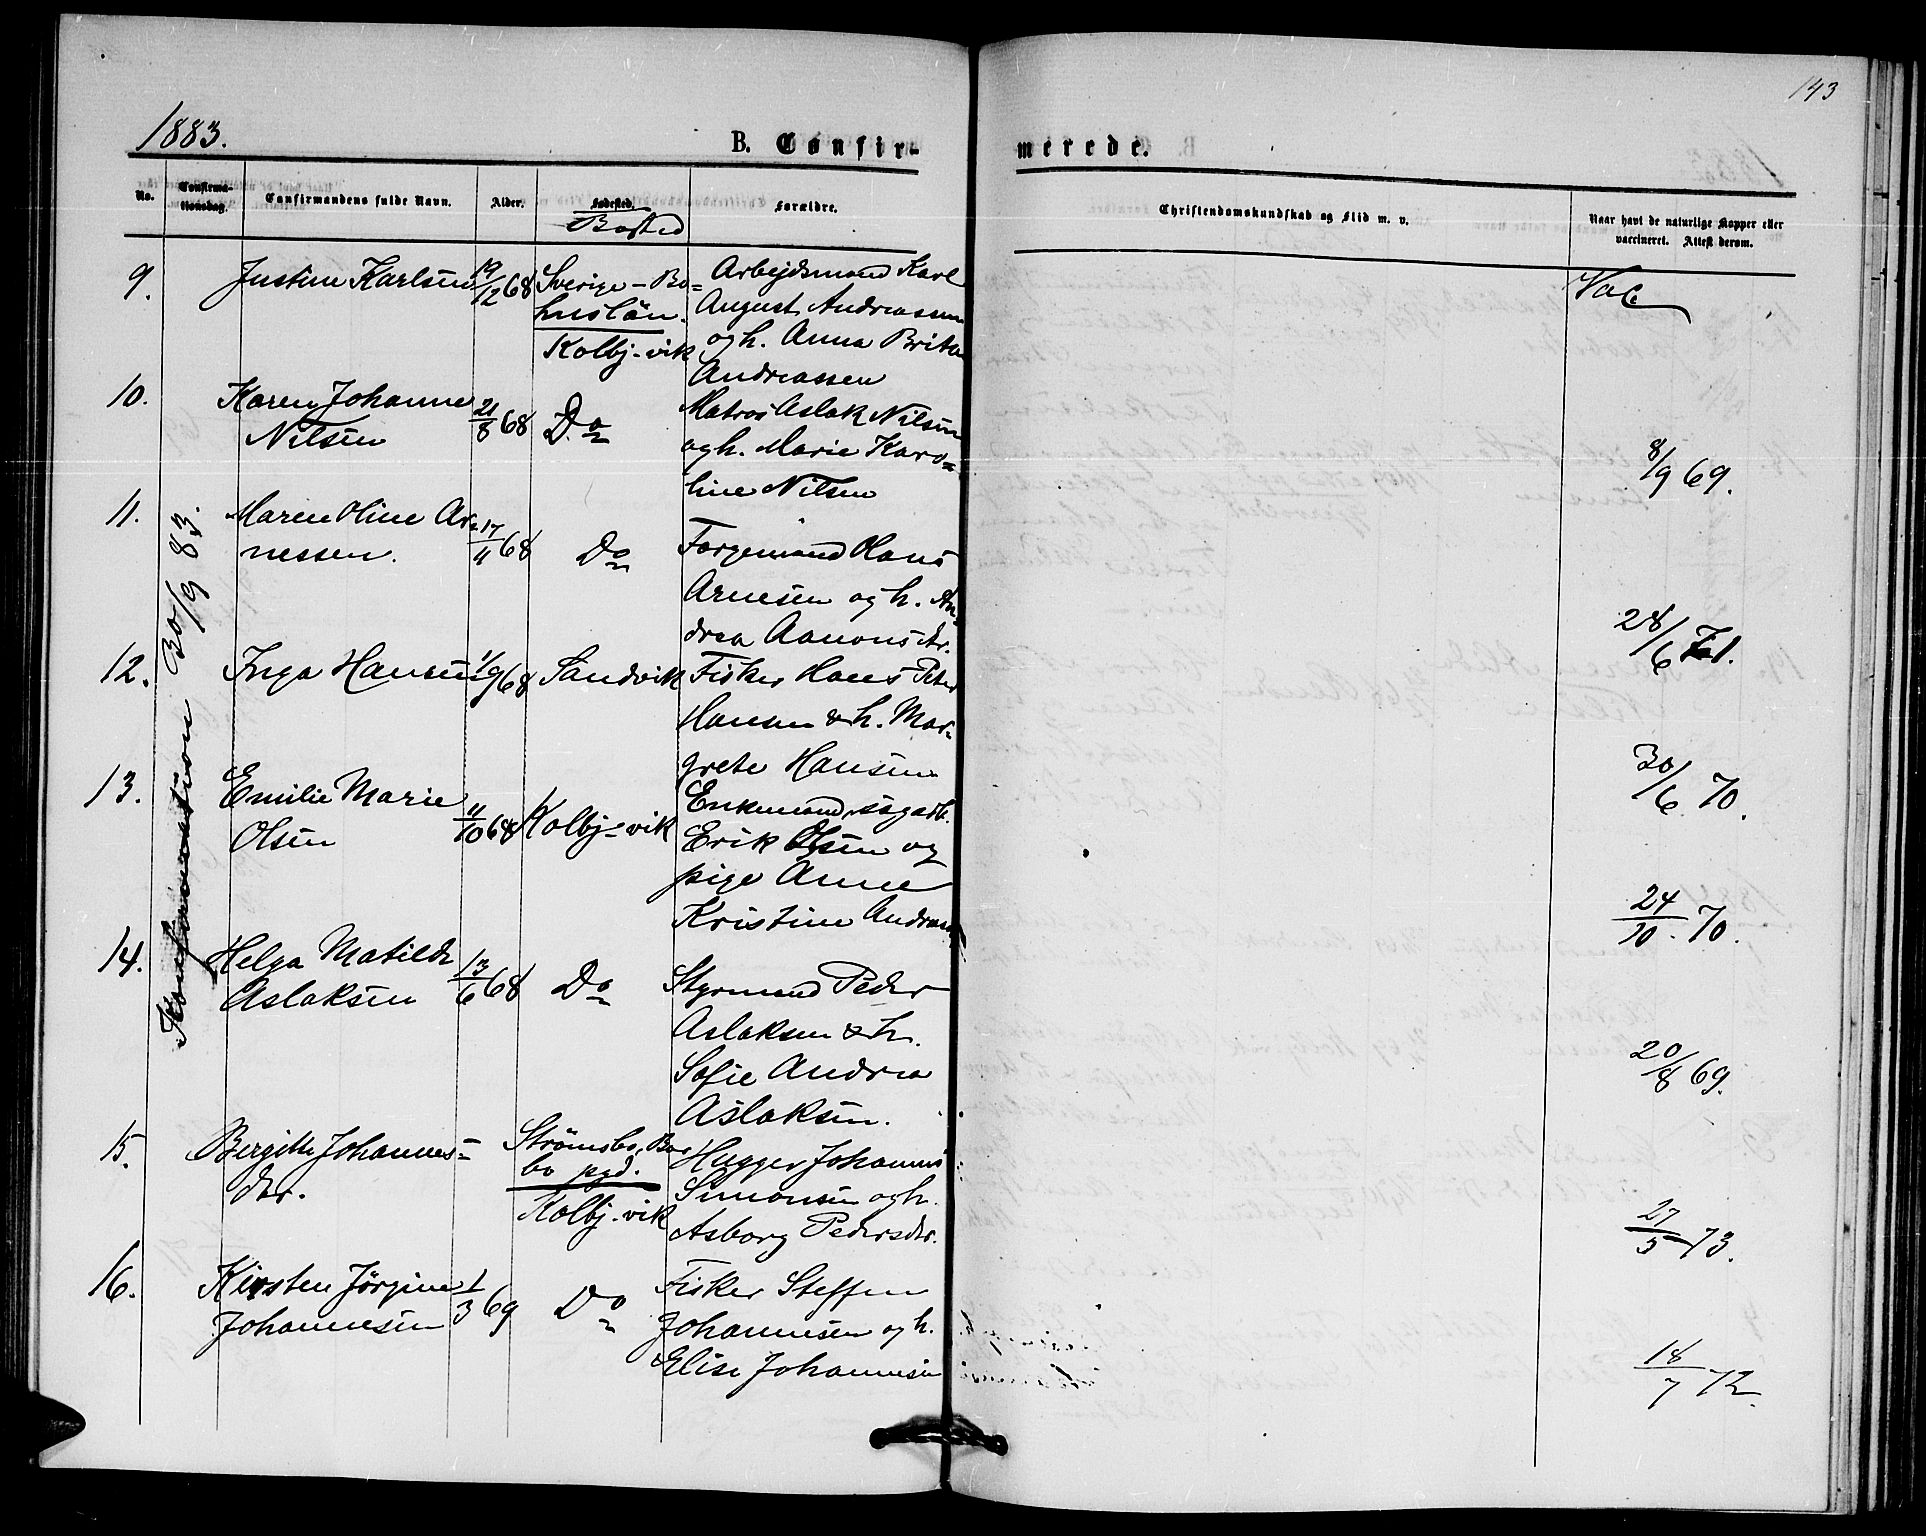 143
1883.
B. Confir-
merede.
No.
Confirma-
tionsdag.
Confirmandens fulde Navn.
Alder.
Fødested.
Bosted
Forældre.
Christendomskundskab og Flid m. v.
Naar havt de naturlige Kopper eller
vaccineret. Attest derom.
Konfirmation 30/9 83.
9.
Justine Karlsen
19/12 68
Sverige - Bo=
huslän.
Kolbj-vik
Arbejdsmand Karl
August Andreassen
og h. Anna Brita
Andreassen
Vac
10.
Karen Johanne
Nilsen
21/8 68
Do
Matros Aslak Nilsen
og h. Marie Karo=
line Nilsen
8/9 69.
11.
Maren Oline Ar=
nessen.
17/11 68
Do
Færgemand Hans
Arnesen og h. An=
drea Aanons dr.
28/6 71.
12.
Inga Hansen
1/9 68
Sandvik
Fisker Hans Peter
Hansen & h. Mar=
grete Hansen
30/6 70.
13.
Emilie Marie
Olsen
11/10 68
Kolbj-vik
Enkemand, sagarb.
Erik Olsen og
pige Anne
Kristine Andreas
24/10. 70.
14.
Helga Matilde
Aslaksen
13/6 68
Do
Styrmand Peder
Aslaksen & h.
Sofie Andrea
Aslaksen.
20/8 69.
15.
Bergitte Johannes=
dtr.
Strømsbo, Bar=
bo pgd.
Kolbj-vik
Hugger Johannes
Simonsen og h.
Asborg Pedersdtr.
27/5 73.
16.
Kirsten Jørgine
Johannesen
1/3 69
Do
Fisker Steffen
Johannesen og h.
Elise Johannesen
18/7 72